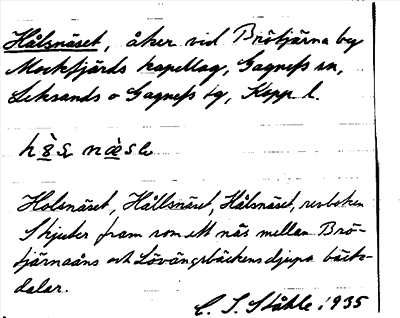 Hålsnäset, åker vid Brötjärna by
Mockfjärds kapellag, Gagnefs sn,
Leksands o Gagnefs tg, Kopp. l.
Holsnäset, Hållsnäset, Hålsnäset, resboken
Skjuter fram som ett näs mellan Brö-
tjärnaåns och Lövängsbäckens djupa bäcks-
dalar.
C. S. Ståhle 1935